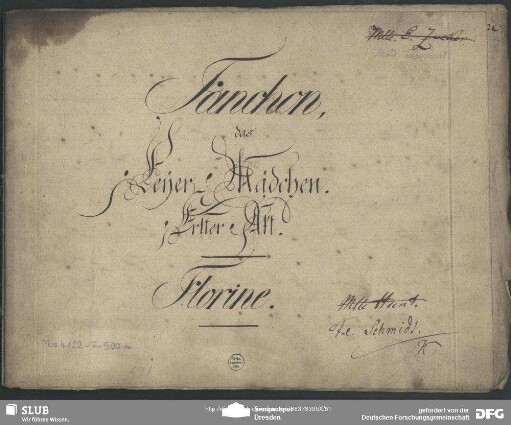 Fanchon,
das
Leyer-Mädchen.
Erster Akt.
Florine.
Mlle Hunt.
Fr. Schmidt.
SLUB
Wir führen Wissen.
Dresden
gefördert von der
Deutschen Forschungsgemeinschaft
DFG